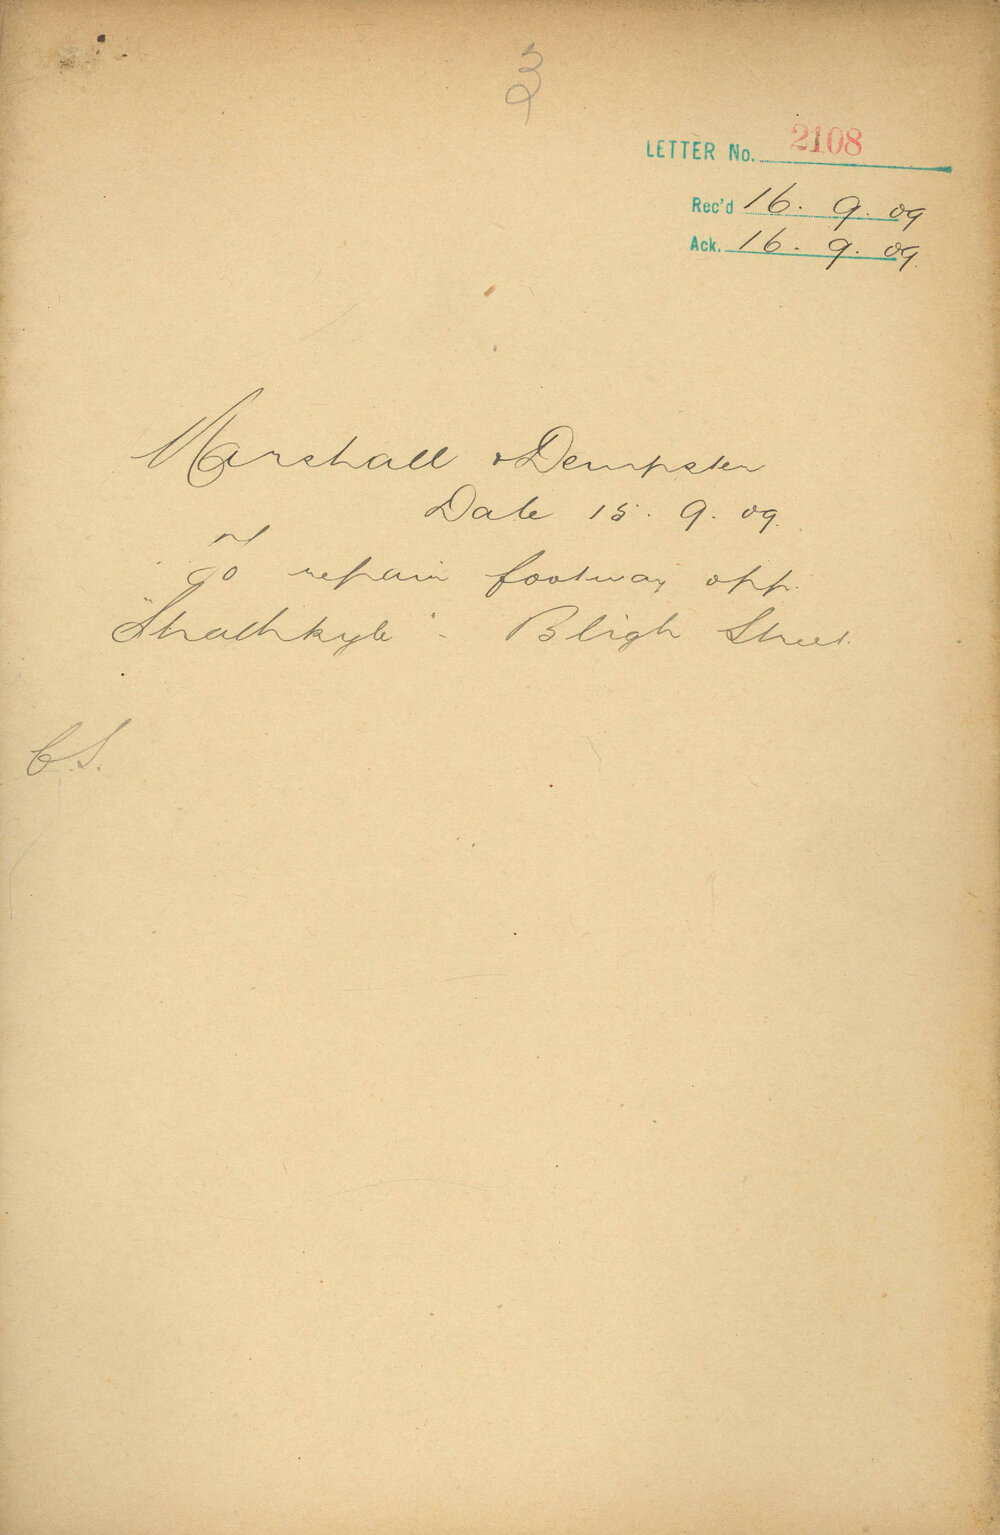 LETTER No. 2108
Rec'd 16. 9. 09
Ack. 16. 9. 09.
Marshall & Dempster
Date 15. 9. 09.
To repair footway opp.
"Strathkyle" - Bligh Street.
C.S.